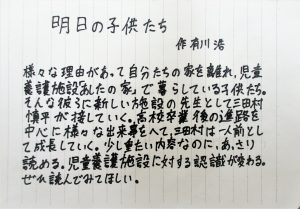 明日の子供たち
作 有川 浩
様々な理由があって自分たちの家を離れ、児童
養護施設「あしたの家」で暮らしている子供たち。
そんな彼らに新しい施設の先生として三田村
慎平が接していく。高校卒業後の進路を
中心に様々な出来事をへて、三田村は一人前とし
て成長していく。少し重たい内容なのに、あっさり
読める。児童養護施設に対する認識が変わる。
ぜひ読んでみてほしい。